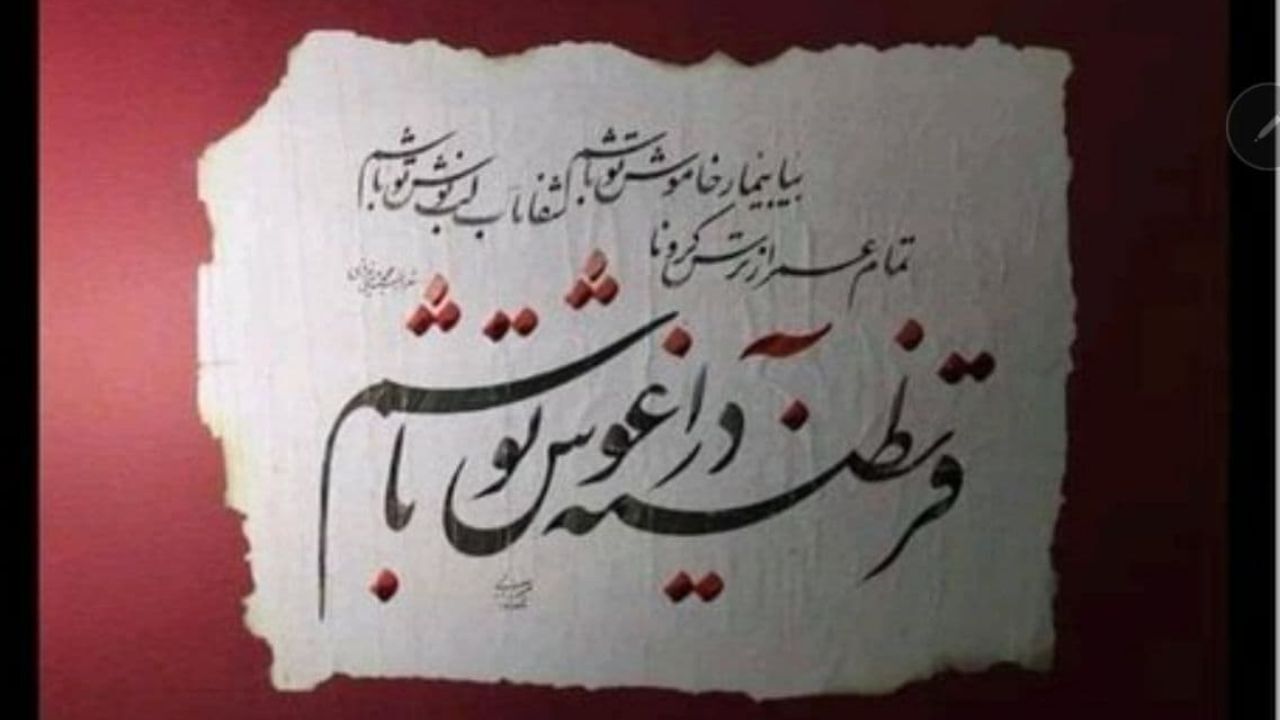 بیا بیمار خاموش تو باشم شفایاب لب نوش تو باشم
تمام عمر از ترس کرونا
قرنطینه در آغوش تو باشم